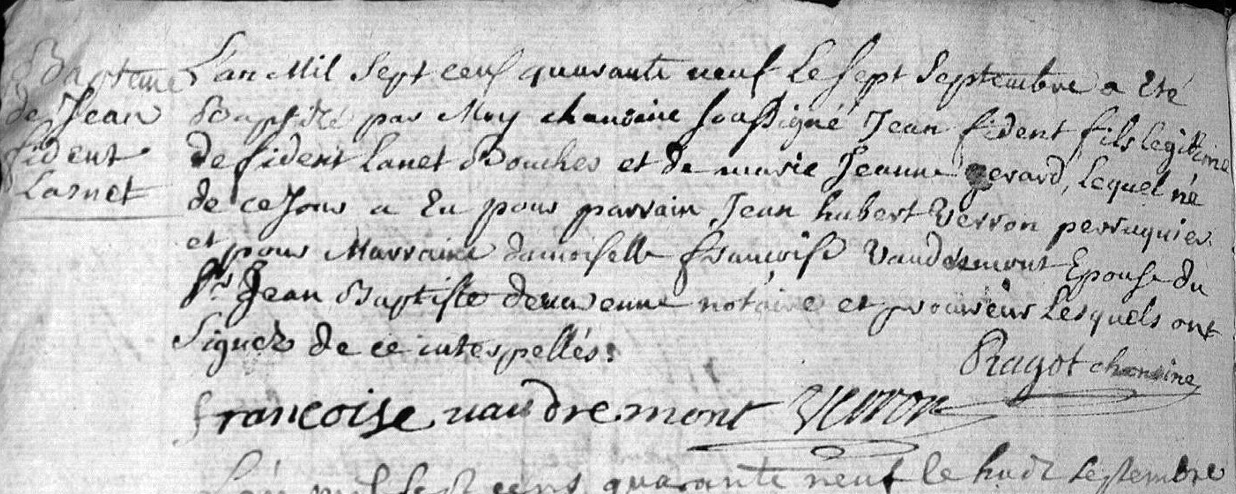 Baptême
de Jean
fident
Lasnet
L'an Mil Sept cens quarante neuf Le sept Septembre a Eté
Baptizé par Moy chanoine soussigné Jean fident fils legitime
de fident Lanet Boucher et de marie Jeanne gerard, Lequel né
de ce Jour a Eu pour parrain, Jean hubert Verron perruquier
et pour Marraine damoiselle françoise Vaudremont Epouse du
Sr Jean Baptiste notaire et procureur Lesquels ont
Signez de ce interpellés.
Ragot chanoine
francoise vaudremont Verron
L'an mil sept cens quarante neuf le huit septembre